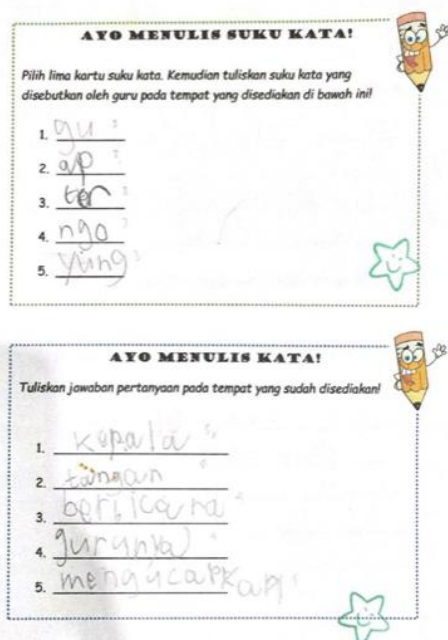 AYO MENULIS SUKU KATA!
Pilih lima kartu suku kata. Kemudian tuliskan suku kata yang
disebutkan oleh guru pada tempat yang disediakan di bawah ini!
1. gu
2. ap
3. ter
4. ngo
5. yung
AYO MENULIS KATA!
Tuliskan jawaban pertanyaan pada tempat yang sudah disediakan!
1. kepala
2. tangan
3. berbicara
4. gurunya
5. mengucapkan